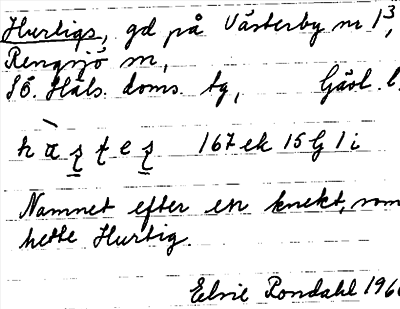 Hurtigs, gd på Västerby nr 1³,
Rengsjö sn,
SÖ. Häls. doms. tg, Gävl. l.
167 ek 15 G 1 i
Namnet efter en knekt, som
hette Hurtig.
Elsie Rondahl